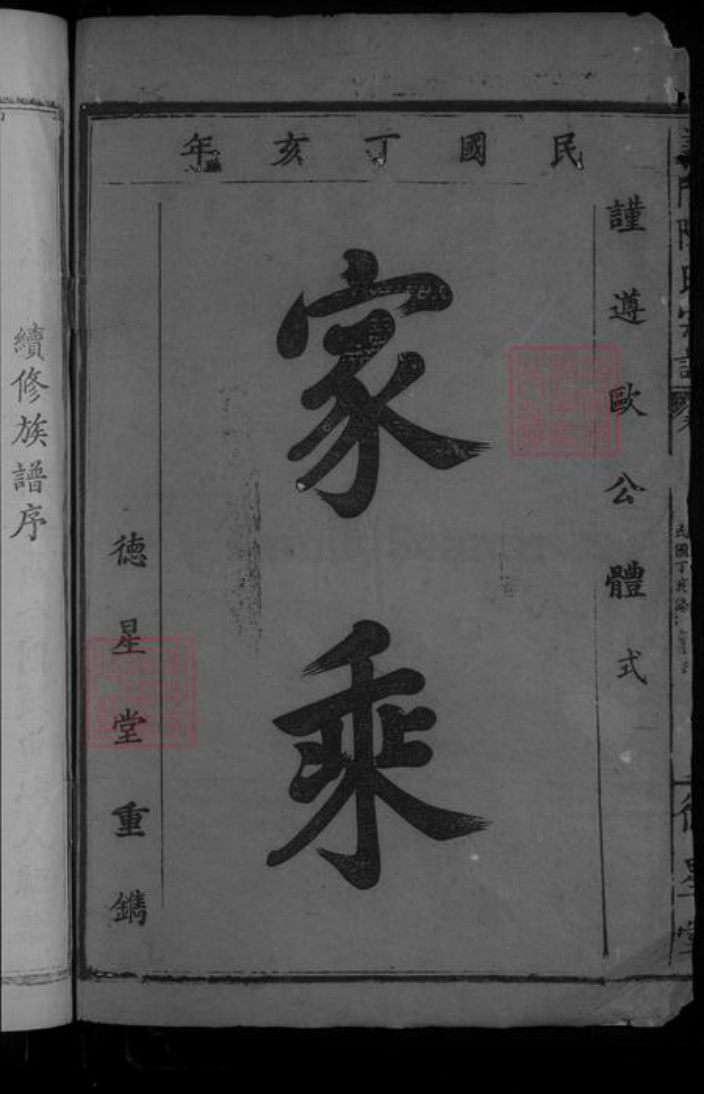 民國丁亥年
謹遵歐公體式
家乘
德星堂重鐫
續修族譜序
德星堂